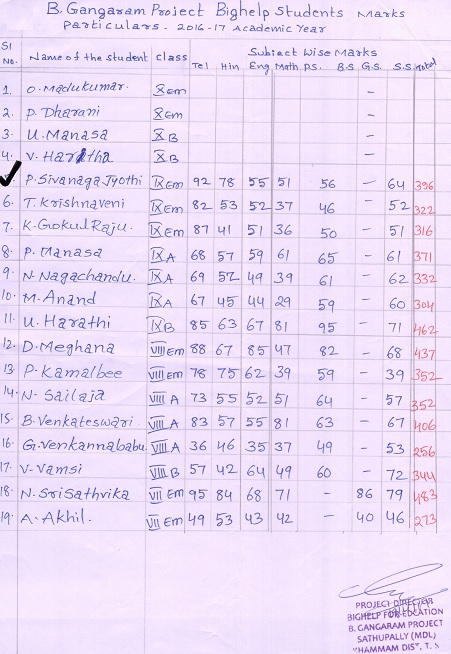 B. Gangaram Project Bighelp Students Marks
Particulars. 2016-17 Academic Year
Sl No. Name of the student Class Subject Wise Marks
Tel Hin Eng Math. P.S. B.S G.S. S.S. Total
1. O. Madukumar. X Em -
2. P. Dharani X Em -
3. U. Manasa X B -
4. V. Haritha X B -
P. Sivanaga Jyothi IX Em 92 78 55 51 56 - 64 396
6. T. Krishnaveni IX Em 82 53 52 37 46 - 52 322
7. K. Gokul Raju. IX Em 87 41 51 36 50 - 51 316
8. P. Manasa IX A 68 57 59 61 65 - 61 371
9. N. Nagachandu. IX A 69 52 49 39 61 - 62 332
10. M. Anand IX A 67 45 44 29 59 - 60 304
11. U. Harathi IX B 85 63 67 81 95 - 71 462
12. D. Meghana VIII Em 88 67 85 47 82 - 68 437
13. P. Kamalbee VIII Em 78 75 62 39 59 - 39 352
14. N. Sailaja VIII A 73 55 52 51 64 - 57 352
15. B. Venkateswari. VIII A 83 57 55 81 63 - 67 406
16. G. Venkannababu. VIII A 36 46 35 37 49 - 53 256
17. V. Vamsi VIII B 57 42 64 49 60 - 72 344
18. N. Sri Sathvika VII Em 95 84 68 71 - 86 79 483
19. A. Akhil. VII Em 49 53 43 42 - 40 46 273
PROJECT DIRECTOR
BIGHELP FOR EDCATION
B. GANGARAM PROJECT
SATHUPALLY (MDL)
KHAMMAM DIST, T.S